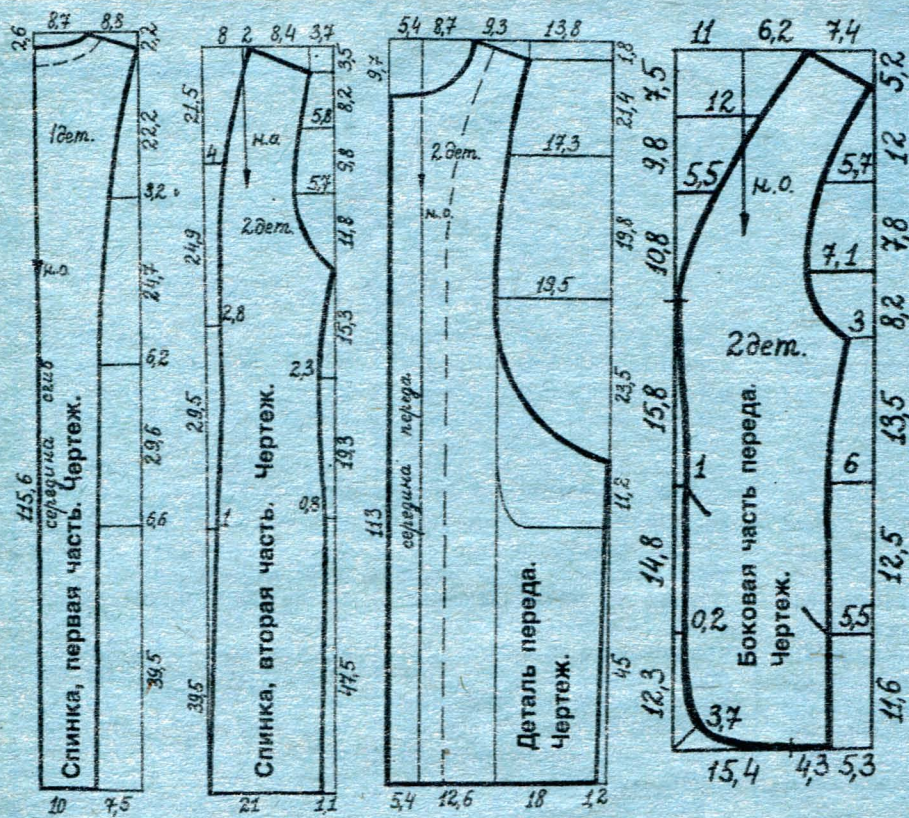 8,7 8,8
2,6
2,2
1 дет.
22,2
3,2
н.о.
24,7
6,2
115,6
середина сгиб
Спинка, первая часть. Чертеж.
29,6
6,6
39,5
10 7,5
8 2 8,4 3,7
3,5
21,5
н.о.
5,8
8,2
4
9,8
5,7
2 дет.
11,8
24,9
2,8
15,3
2,3
29,5
Спинка, вторая часть. Чертеж.
19,3
1
0,8
39,5
47,5
21 1,1
5,4 8,7 9,3 13,8
9,7
1,8
21,4
2 дет.
17,3
н.о.
19,8
19,5
середина переда.
23,5
113
11,2
Деталь переда.
Чертеж.
45
5,4 12,6 18 1,2
11 6,2 7,4
7,5
5,2
12
9,8
12
5,5
н.о.
5,7
10,8
7,8
7,1
8,2
3
2 дет.
15,8
13,5
1
6
Боковая часть переда.
Чертеж.
14,8
12,5
0,2
5,5
12,3
11,6
3,7
15,4 4,3 5,3